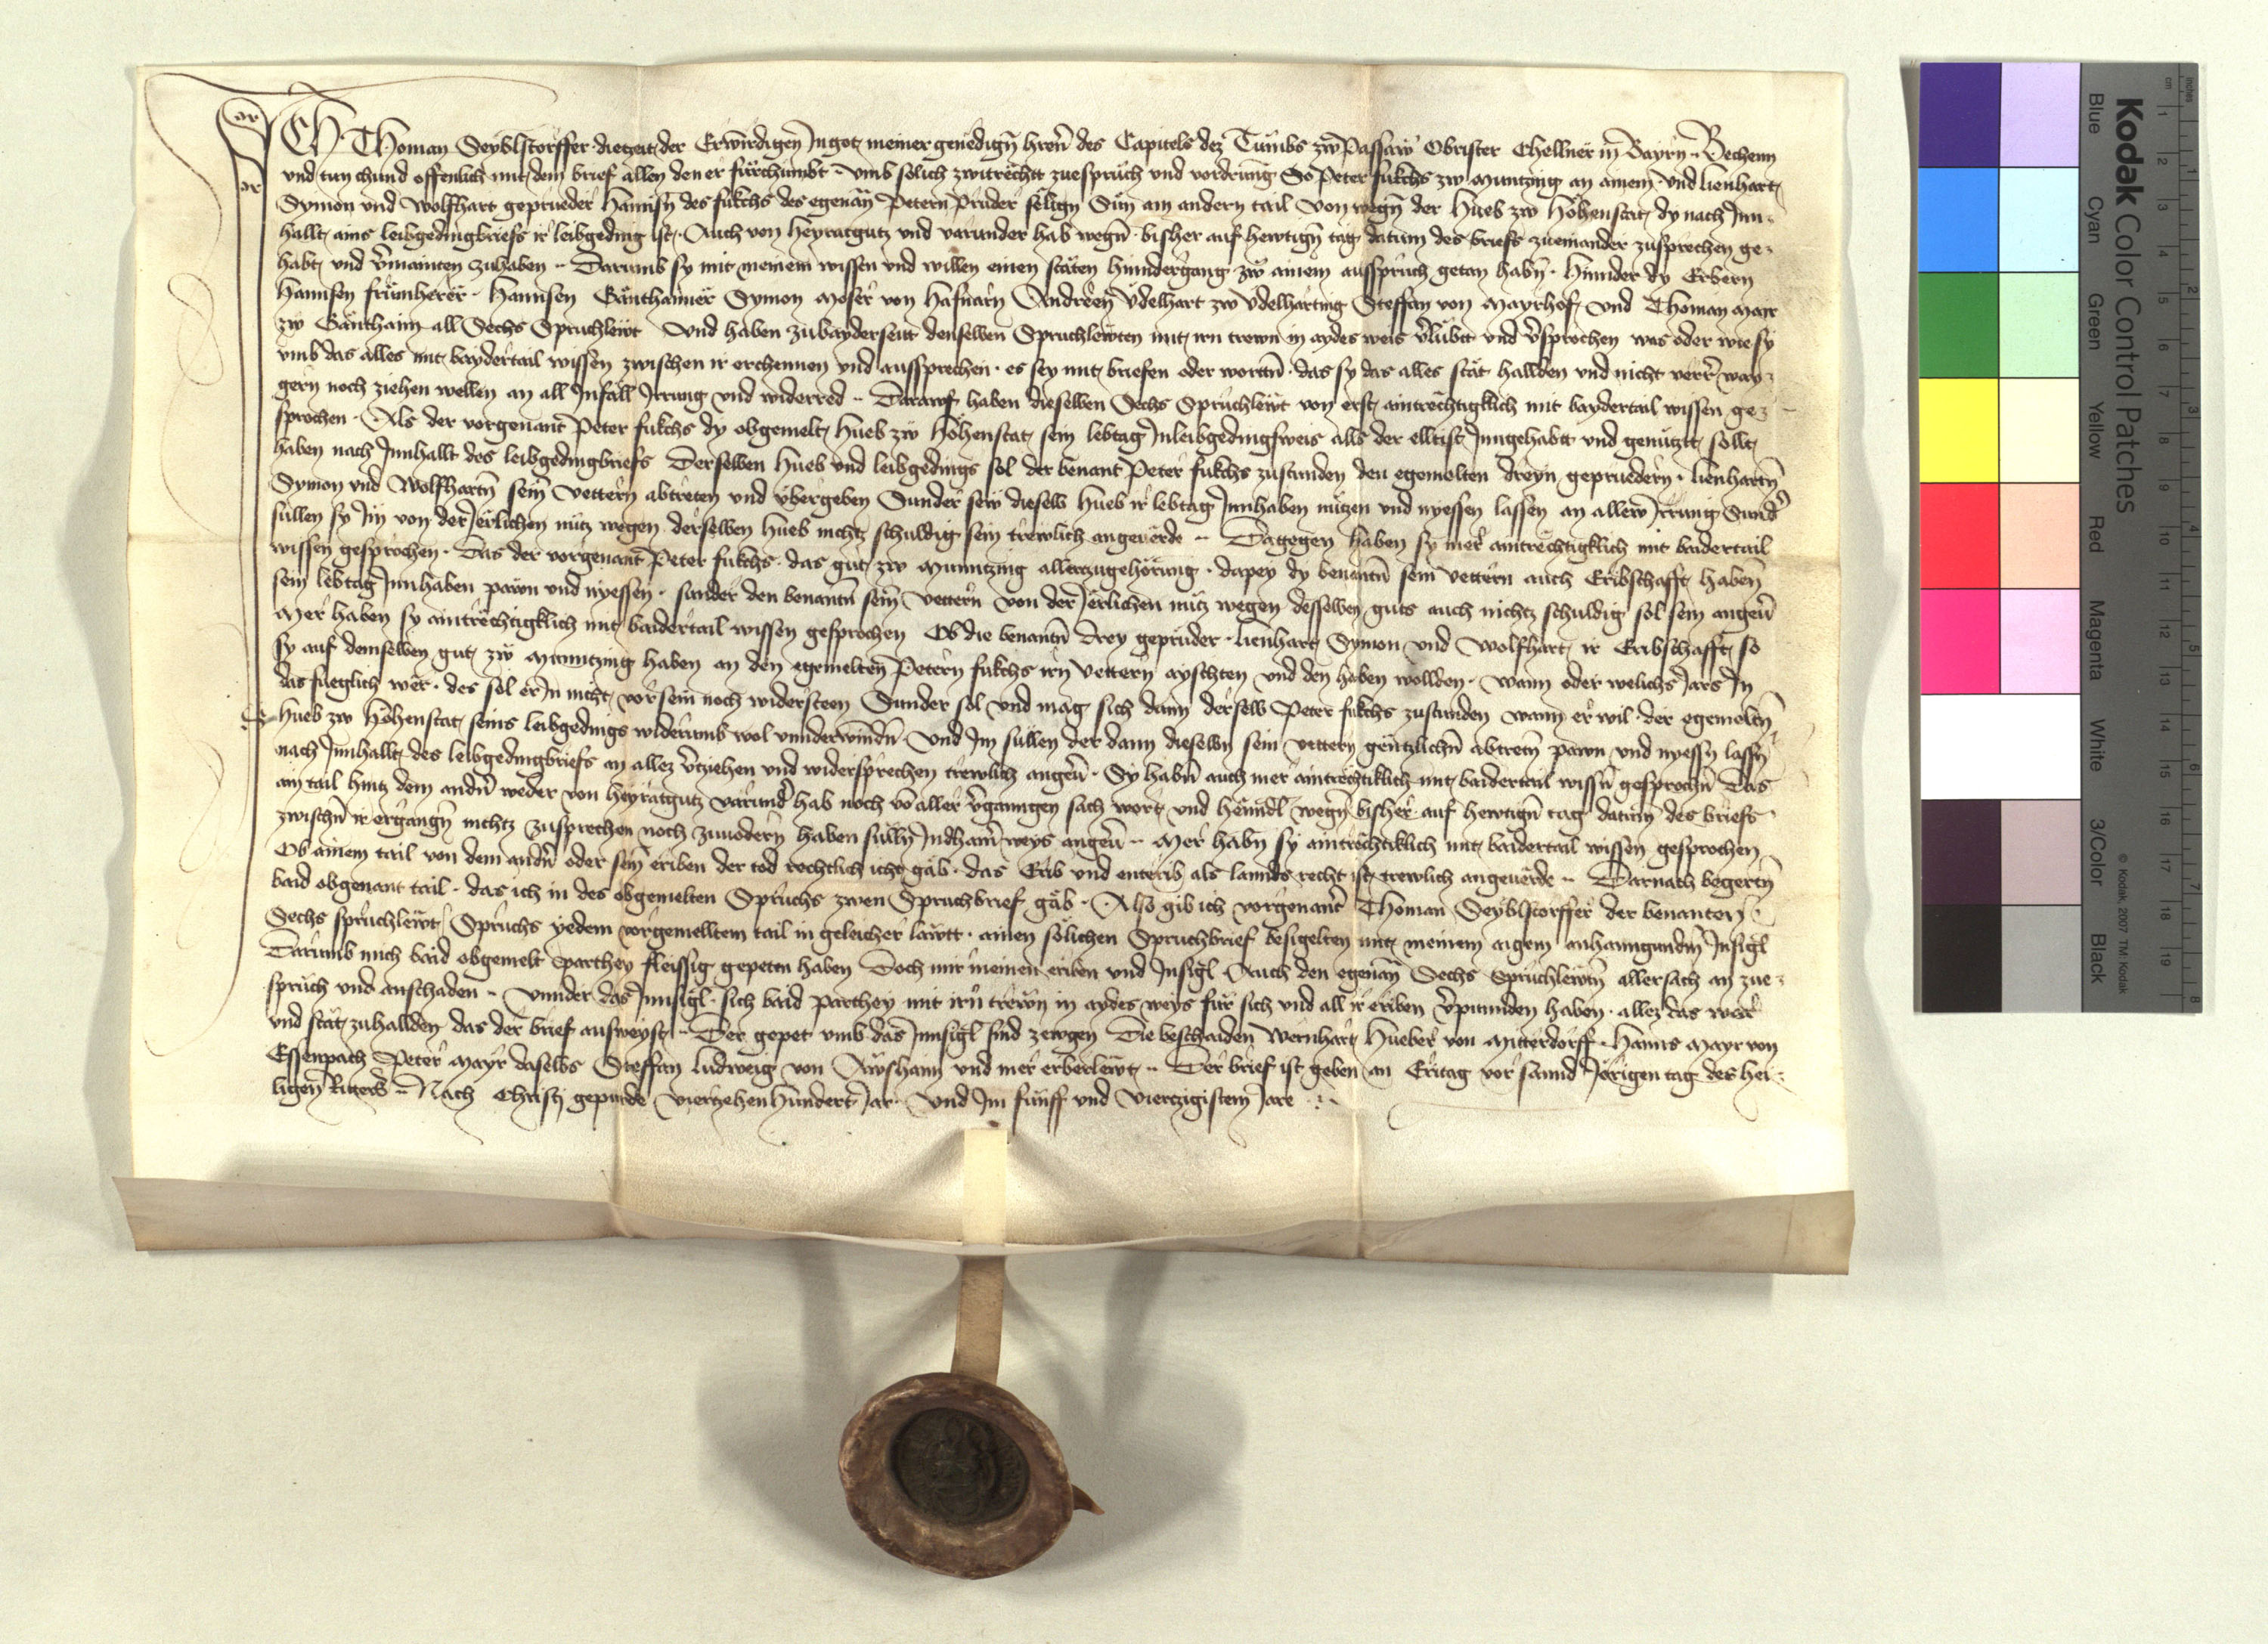 ICH Thoman Seyblstorffer dietzeit der Erwirdigen Ingot meiner genedign hren des Capitels dez Tumbs zw Passaw Obrister Chellner in Bayrn Bechenn
und tun chund offenlich mit dem brief allen den er furchumbt Umb solich zwitrechtt zuespruch und vordrung So Peter fukchs zw Muntzing an ainem und lienhart
Symon und Wolfhart geprueder Hannsn des fukchs des egenan Petern Pruder selign Sun am andern tail Von wegn der Hueb zw Hohenstat dy nach Inn-
hallt ains leibgedingbriefs ir leibgeding ist Auch von heyratgutz und varunder hab wegn bisher auf hewtign tag datum des briefs zueinander zusprechen ge-
habt und vermainten zuhaben Darumb sy mit meinem wissen und willen einen stäten hinndergang zw ainem ausspruch getan habn hinnder dy Erbern
Hannsen frumherer Hannsen Gänthaimer Symon Moser von Hafnarn Andreen Udelhart zw Udelharting Steffan von Mayrhof und Thoman Mair
zw Gänthaim all Sechs Spruchlewt Und haben zubayderseitt denselben Spruchlewten mit irn trewn in aydes weis verlubtt und versprochen was oder wie sy
umb das alles mit baydertail wissen zwischen ir erchennen und aussprechen es sey mit briefen oder wortn das sy das alles stät hallden und nicht verrer way-
gern noch ziehen wellen an all Infäll Irrung und widerred Darauf haben dieselben Sechs Spruchlewt von erst aintrechtigklich mit baydertail wissen ge-
sprochen Als der vorgenant Peter fukchs dy obgemelt Hueb zw Hohenstat sein lebtag Inleibgedingsweis alls der elltist Inngehabt und genutzt sollt
haben nach Innhallt des leibgedingbriefs Derselben Hueb und leibgedings sol der benant Peter fukchs zustunden den egemelten dreyn gepruedern lienhartn
Symon und Wolfhartn sein Vettern abtreten und ubergeben Sunder sew dieselb Hueb ir lebtag Innhaben nutzen und nyessen lassen an allew Irrung Sunder
sullen sy Im von der Ierlichen nutz wegen derselben Hueb nichtz schuldig sein trewlich angeverde Dagegen haben sy mer aintrechtigklich mit baidertail
wissen gesprochen Das der vorgenant Peter fukchs das gut zw Munntzing allerzugehörung dapey dy benantn sein Vettern auch Eribschafft haben
sein lebtag Innhaben pawn und nyessen sunder den benantn sein Vettern von der Ierlichen nutz wegen desselben guts auch nichtz schuldig sol sein angever
Mer haben sy aintrechtigklich mit baidertail wissen gesprochen Ob die benantn drey geprüder lienhart Symon und Wolfhart ir Eribschafft so
sy auf demselben gut zw Munntzing haben an den egemelten Petern fukchs irn Vettern ayschten und den haben wollden Wann oder welichs Iars In
das fueglich wer des sol er In nicht vor sein noch widersteen Sunder sol und mag sich dann derselb Peter fukchs zustunden wann er wil der egemeltn
Hueb zw Hohenstat seins leibgedings widerumb wol unnderwindn Und Im sullen der dann dieselbn sein vettern gentzlichn abtretn pawn und nyessn lassn
nach Innhallt des leibgedingbriefs an allez vertziehen und widersprechen trewlich angever Sy habn auch mer aintrechtiklich mit baidertail wissn gesprochn Das
ain tail hintz dem andern weder von heyratgutz varunder hab noch von aller vergangen sach wort und henndl wegn bisher auf hewtign tag datum des briefs
zwischn ir ergangn nichtz zusprechen noch zuvodern haben sulln Indhain weys angever Mer habn sy aintrechtiklich mit baidertail wissen gesprochen
Ob ainem tail von dem andern oder sein eriben der tod rechtlich icht gäb das Erib und enterib als lannds recht ist trewlich angeverde Darnach begertn
baid obgenant tail das ich in des obgemelten Spruchs zwen Spruchbrief gäb Also gib ich vorgenant Thoman Seyblstorffer der benanten
Sechs spruchlewt Spruchs yedem vorgemelltem tail in geleicher lawtt ainen solichen Spruchbrief besigelten mit meinem aigem anhanngundm Insigl
Darumb mich baid obgemelt Parthey fleissig gepeten haben Doch mir meinen eriben und Insigl Auch den egenan Sechs Spruchlewtn aller sach an zue-
spruch und anschaden Unnder das Innsigl sich baid Parthey mit irn trewn in aydes weys fur sich und all ir eriben verpunnden haben allez das war
und stät zuhallden das der brief ausweyst Der gepet umb das Innsigl sind zewgen Die beschaiden Wernhart Hueber von Mitterdorff Hanns Mayr von
Essenpach Peter Mayr daselbs Steffan Ludweig von Awshaim und mer erberlewt Der brief ist geben an Eritag vor sannd Jorigen tag des hei-
ligen Ritters Nach Christi gepurde Viertzehenhundert Iar Und Im funff und Viertzigistem Iare
Kodak Color Control Patches
Blue Cyan Green Yellow Red Magenta White 3/Color Black
© Kodak, 2007 TM: Kodak
cm 1 2 3 4 5 6 7 8 9 10 11 12 13 14 15 16 17 18 19
inches 1 2 3 4 5 6 7 8